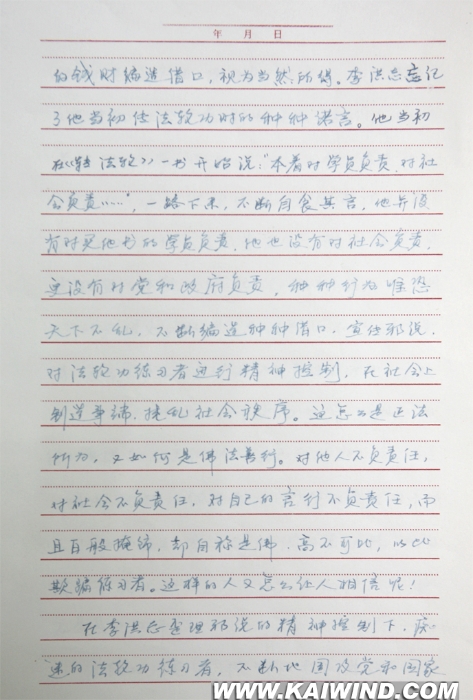 年 月 日
的钱财编造借口，视为当然所得。李洪志忘记
了他当初传法轮功时的种种诺言。他当初
在《转法轮》一书开始说：“本着对学员负责，对社
会负责……”，一路下来，不断自食其言，他并没
有对买他书的学员负责，他也没有对社会负责，
更没有对党和政府负责，种种行为唯恐
天下不乱，不断编造种种借口，宣传邪说，
对法轮功练习者进行精神控制，在社会上
制造事端，扰乱社会秩序。这怎么是正法
所为，又如何是佛法善行。对他人不负责任，
对社会不负责任，对自己的言行不负责任，而
且百般掩饰，却自称是佛，高不可比，以此
欺骗练习者。这样的人又怎么让人相信呢！
在李洪志歪理邪说的精神控制下，痴
迷的法轮功练习者，不断地围攻党和国家
WWW.KAIWIND.COM